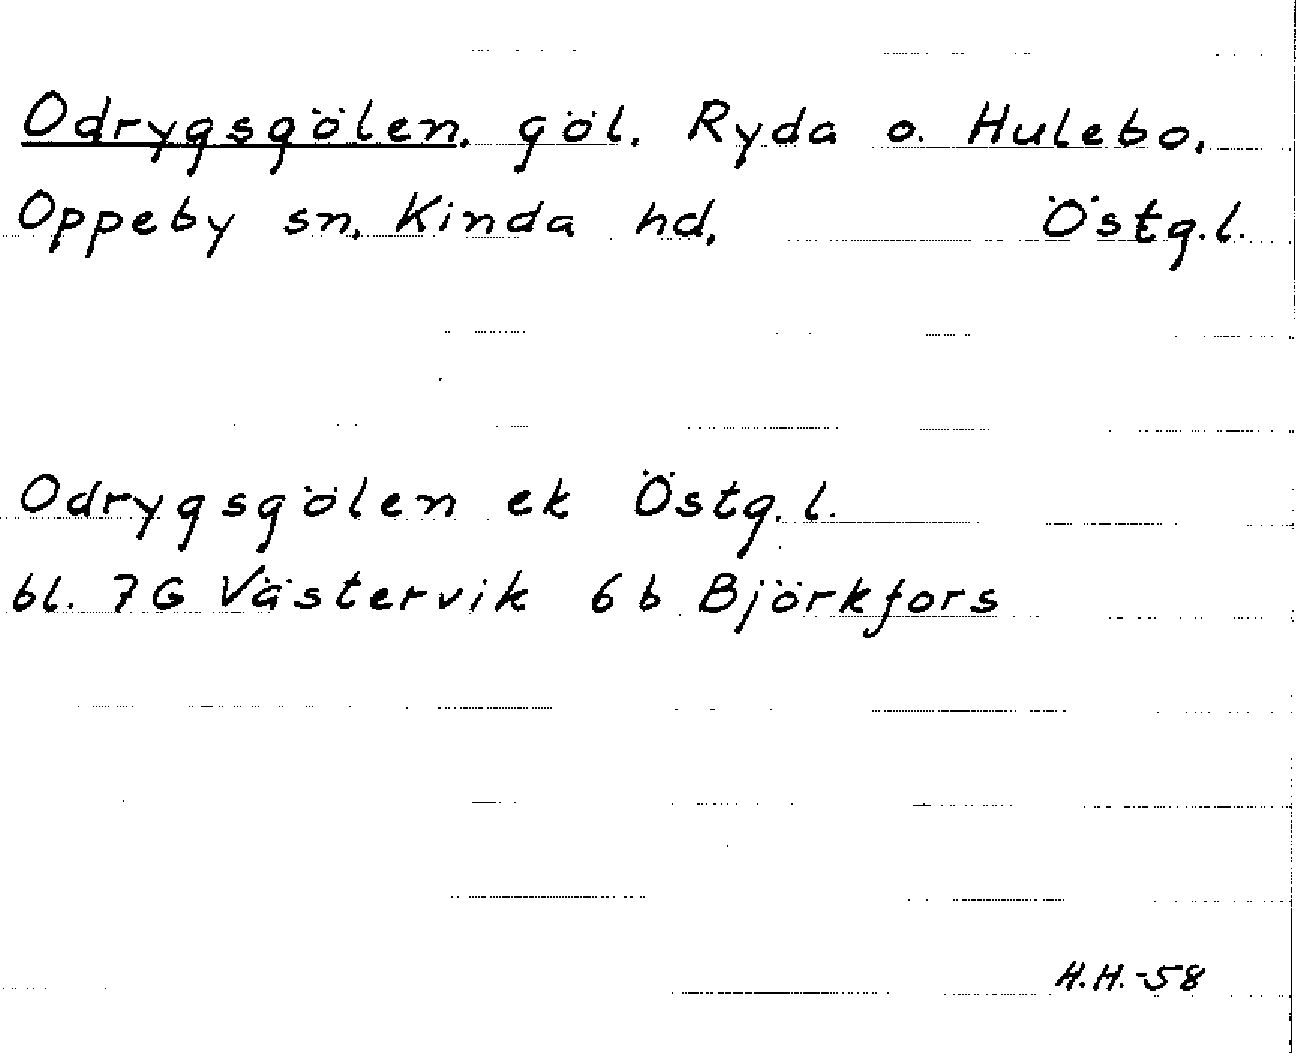 Odrygsgölen, göl, Ryda o. Hulebo,
Oppeby sn, Kinda hd, Östg.l.
Odrygsgölen ek Östg.l.
bl. 7G Västervik 6b Björkfors
H.H.-58